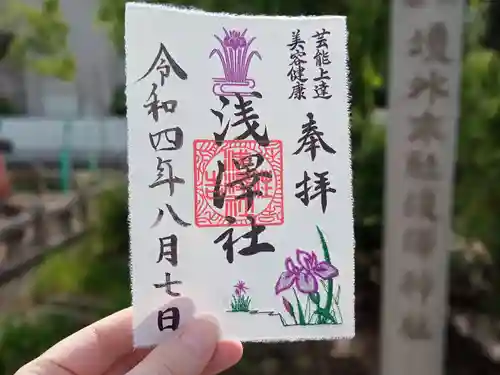 芸能上達
美容健康
奉拝
浅澤社
令和四年八月七日
神社